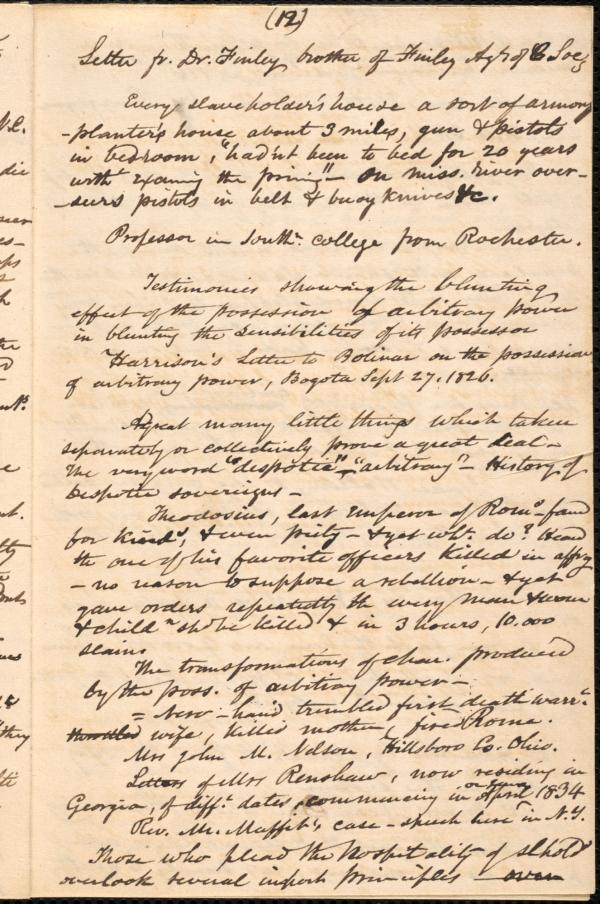 (12)
Letter fr. Dr. Finley, brother of Finley Agt of C Socy
Every slaveholder's house a sort of armory
-planter's house about 3 miles, gun & pistols
in bedroom, "hadnt been to bed for 20 years
witht examg the priming" - On Miss. river over-
-seers pistols in belt & buoy knives &c.
Professor in South. college from Rochester.
Testimonies showing the blunting
effect of the possession of arbitrary power
in blunting the sensibilities of its possessor
Harrison's Letter to Bolivar on the possession
of arbitrary power, Bogota Sept 27, 1826.
A great many little things which taken
separately or collectively prove a great deal -
The very word "despotic" - "arbitrary" - History of
Despotic sovereigns -
Theodosius, last Emperor of Rome - famd
for kinds, & even piety - & yet wht. do? Heard
tht one of his favorite officers killed in affry
- no reason to suppose a rebellion - & yet
gave orders repeatedly tht every man & wom
& child shd be killed & in 3 hours, 10.000
slain
The transformations of char. produced
by the poss. of arbitrary power -
= Nero - hand trembled first death warrt.
wife, killed mother, fired Rome.
Mrs John M. Nelson, Hillsboro Co. Ohio.
Letters of Mrs Renshaw, now residing in
Georgia, of difft. dates, commencing in April 1834
Rev. Mr. Maffit's case - speech here in N.Y.
Those who plead the hospitality of slhold
overlook several import principles - over